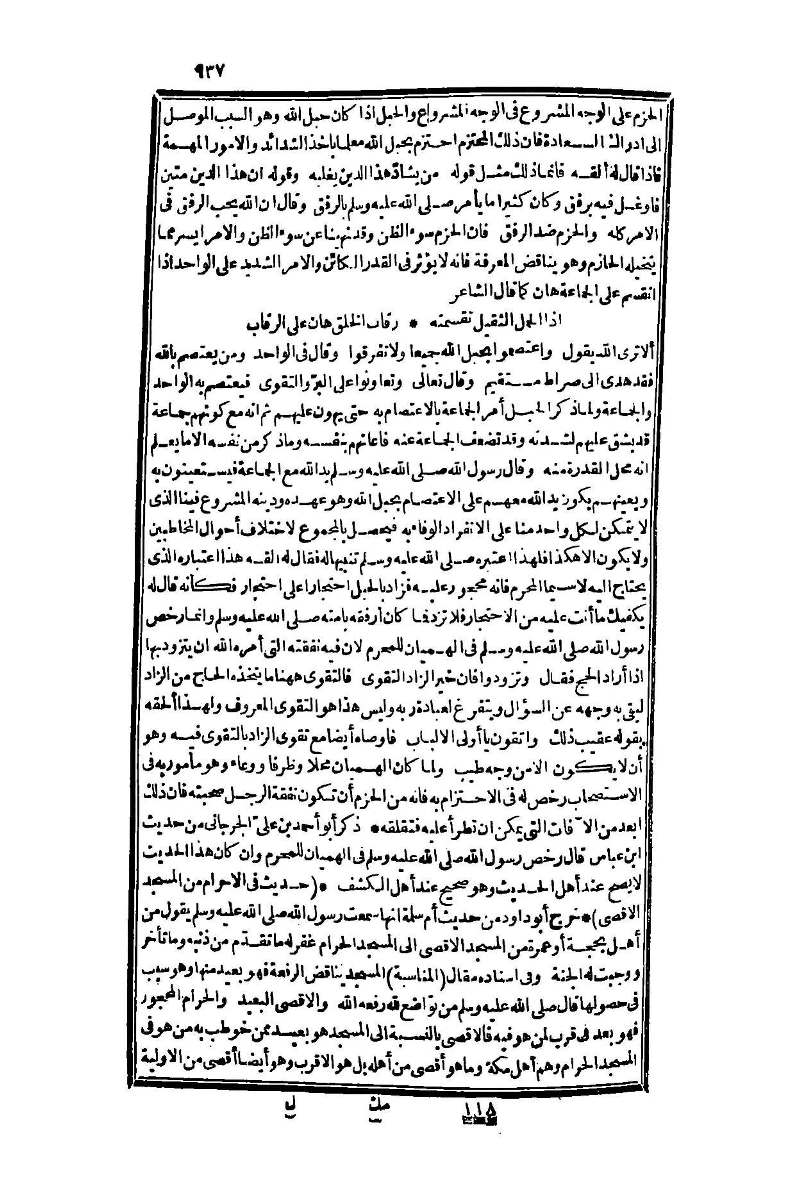 ٩٣٧
الحزم على الوجه المشروع فى الوجه المشروع والحبل اذا كان حبل الله وهو السبب الموصل
الى ادراك السعادة فان ذلك المحتزم احتزم بحبل الله معلما باخذ الشدائد والامور المهمة
فاذا قال له ألقه فانما ذلك مثل قوله من يشاد هذا الدين يغلبه وقوله ان هذا الدين متين
فاوغل فيه برفق وكان كثيرا ما يأمر صلى الله عليه وسلم بالرفق وقال ان الله يحب الرفق فى
الامر كله والحزم ضد الرفق فان الحزم سوء الظن وقد نهينا عن سوء الظن والامر ايسر مما
يتخيله الحازم وهو يناقض المعرفة فانه لا يؤثر فى القدر الكائن والامر الشديد على الواحد اذا
انقسم على الجماعة هان كما قال الشاعر
اذا الحمل الثقيل تقسمته * رقاب الخلق هان على الرقاب
ألا ترى الله يقول واعتصموا بحبل الله جميعا ولا تفرقوا وقال فى الواحد ومن يعتصم بالله
فقد هدى الى صراط مستقيم وقال تعالى وتعاونوا على البر والتقوى فيعتصم به الواحد
والجماعة ولما ذكر الحبل أمر الجماعة بالاعتصام به حتى يهون عليهم ثم انه مع كونهم جماعة
قد يشق عليهم لشدته وقد تضعف الجماعة عنه فاعانهم بنفسه وما ذكر من نفسه الا ما يعلم
انه محل القدرة منه وقال رسول الله صلى الله عليه وسلم يد الله مع الجماعة فيستعينون به
ويعينهم بكون يد الله معهم على الاعتصام بحبل الله وهو عهده ودينه المشروع فينا الذى
لا يتمكن لكل واحد منا على الانفراد الوفاء به فيحصل بالمجموع لاختلاف أحوال المخاطبين
ولا يكون الا هكذا فلهذا اعتبره صلى الله عليه وسلم تنبيها له فقال له القه هذا اعتباره الذى
يحتاج اليه لا سيما المحرم فانه محجور عليه فزاد بالحبل احتجارا على احتجار فكأنه قال له
يكفيك ما أنت عليه من الاحتجار فلا تزد فما كان أرفقه بامته صلى الله عليه وسلم وانما رخص
رسول الله صلى الله عليه وسلم فى الهميان للمحرم لان فيه نفقته التى أمره الله ان يتزود بها
اذا أراد الحج فقال وتزودوا فان خير الزاد التقوى فالتقوى ههنا ما يتخذه الحاج من الزاد
ليقى به وجهه عن السؤال ويتفرغ لعبادة ربه وليس هذا هو التقوى المعروف ولهذا ألحقه
بقوله عقيب ذلك واتقون يا أولى الالباب فاوصاه أيضا مع تقوى الزاد بالتقوى فيه وهو
أن لا يكون الا من وجه طيب ولما كان الهميان محلا وظرفا ووعاء وهو مأمور به فى
الاستصحاب رخص له فى الاحتزام به فانه من الحزم أن تكون نفقة الرجل صحبته فان ذلك
ابعد من الآفات التى يمكن ان تطرأ عليه فتتلفه * ذكر أبو أحمد بن على الجرجانى من حديث
ابن عباس قال رخص رسول الله صلى الله عليه وسلم فى الهميان للمحرم وان كان هذا الحديث
لا يصح عند أهل الحديث وهو صحيح عند أهل الكشف * (حديث فى الاحرام من المسجد
الاقصى) * خرج أبو داود من حديث أم سلمة انها سمعت رسول الله صلى الله عليه وسلم يقول من
أهل بحجة أو عمرة من المسجد الاقصى الى المسجد الحرام غفر له ما تقدم من ذنبه وما تأخر
ووجبت له الجنة وفى اسناده مقال (المناسبة) المسجد يناقض الرفعة فهو بعيد منها وهو سبب
فى حصولها قال صلى الله عليه وسلم من تواضع لله رفعه الله والاقصى البعيد والحرام المحجور
فهو بعد فى قرب لمن هو فيه فالاقصى بالنسبة الى المسجد هو بعيد ممن خوطب به من هو فى
المسجد الحرام وهم أهل مكة وما هو أقصى من أهله بل هو الاقرب وهو أيضا أقصى من الاولية
١١٥ مك